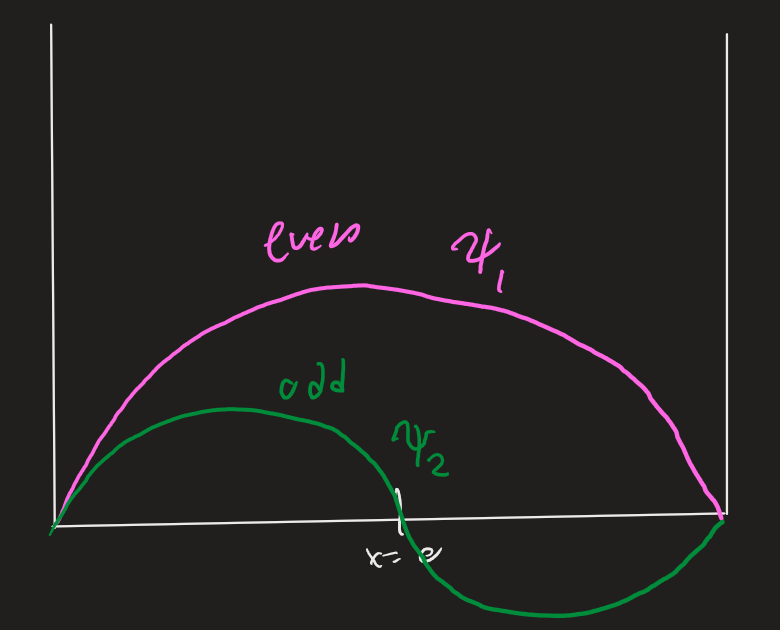 even ψ₁
odd
ψ₂
x=0